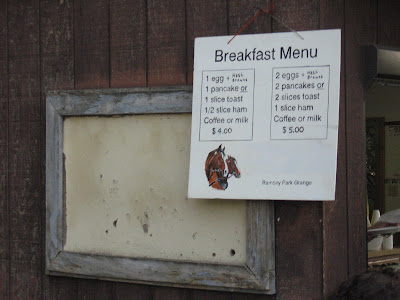 Breakfast Menu
1 egg + Hash Browns
1 pancake or
1 slice toast
1/2 slice ham
Coffee or milk
$ 4.00
2 eggs + Hash Browns
2 pancakes or
2 slices toast
1 slice ham
Coffee or milk
$ 5.00
Ramony Park Grange